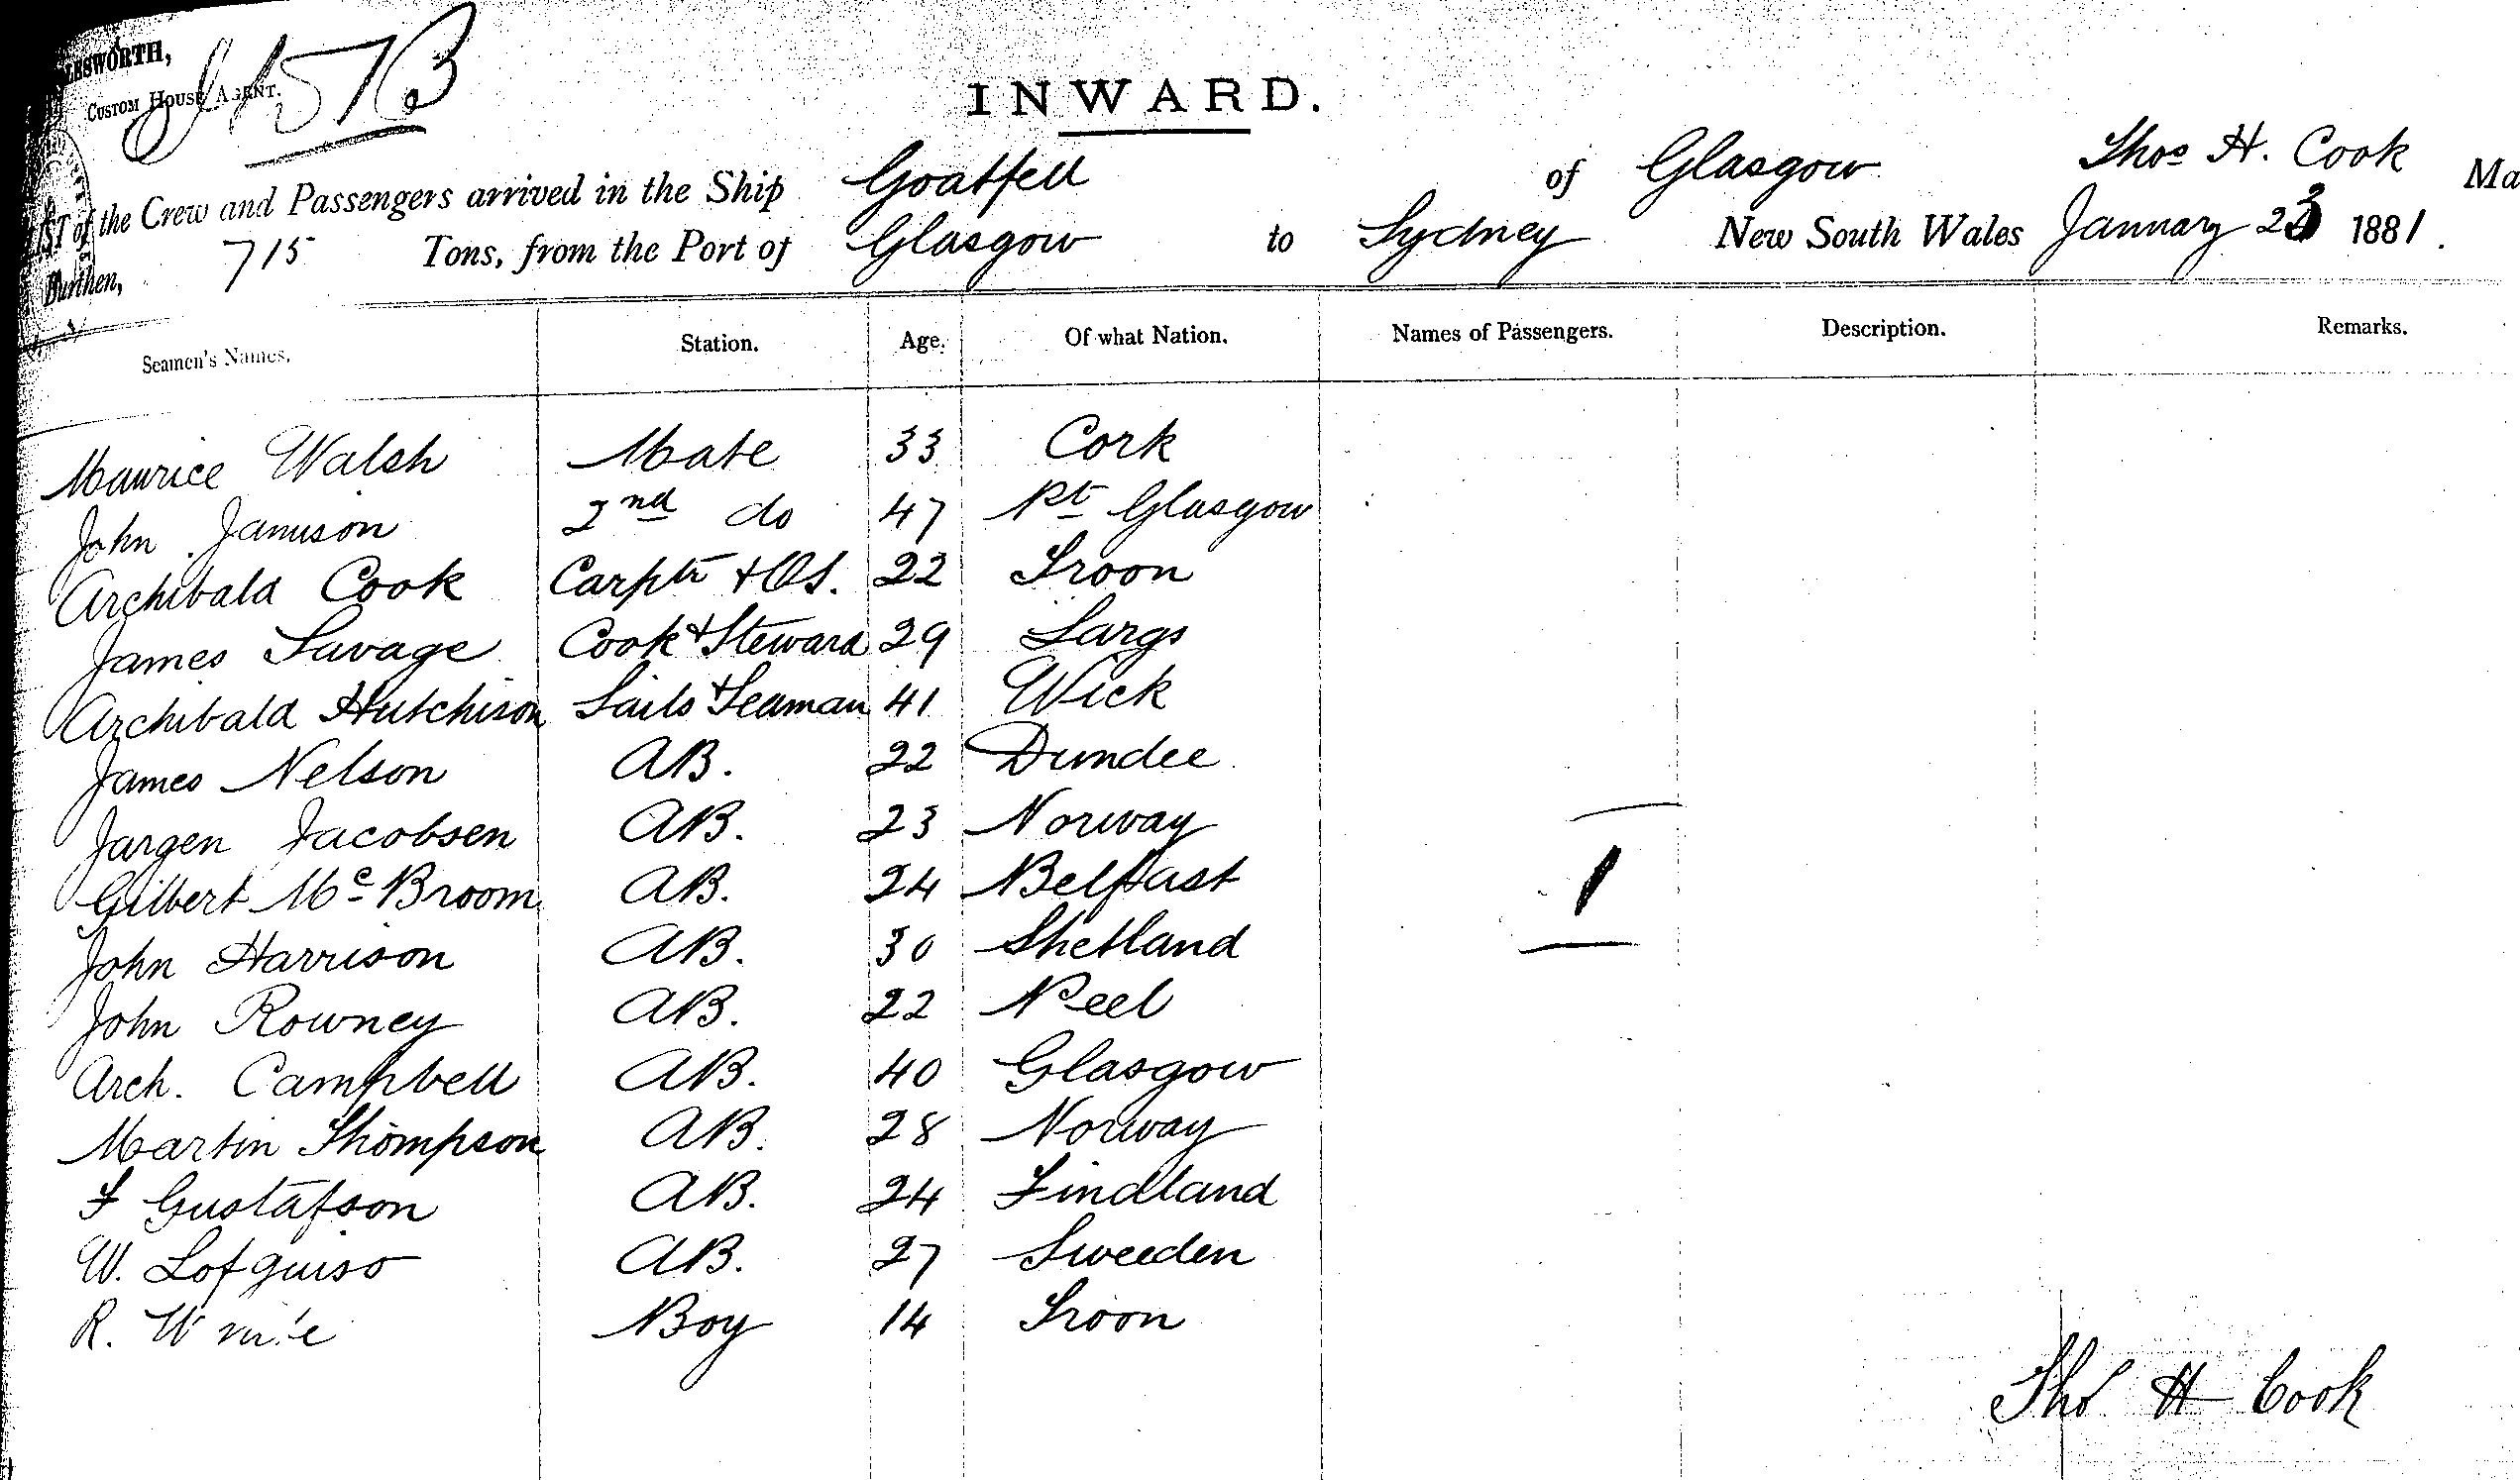 LESWORTH,
CUSTOM HOUSE AGENT.
INWARD.
LIST of the Crew and Passengers arrived in the Ship Goatfell of Glasgow Thos H. Cook Ma
Burthen, 715 Tons, from the Port of Glasgow to Sydney New South Wales January 23 1881.
Seamen's Names. Station. Age. Of what Nation. Names of Passengers. Description. Remarks.
Maurice Walsh Mate 33 Cork
John Jamieson 2nd do 47 Pt Glasgow
Archibald Cook Carptr + OS. 22 Troon
James Savage Cook + Steward 29 Largs
Archibald Hutchison Sails + Seaman 41 Wick
James Nelson AB. 22 Dundee
Jargen Jacobsen AB. 23 Norway
Gilbert McBroom AB. 24 Belfast
1
John Harrison AB. 30 Shetland
John Rowney AB. 22 Peel
Arch. Campbell AB. 40 Glasgow
Martin Thompson AB. 28 Norway
F Gustafson AB. 24 Findland
W. Lofguiso AB. 27 Sweeden
R. Boy 14 Troon
Thos H Cook